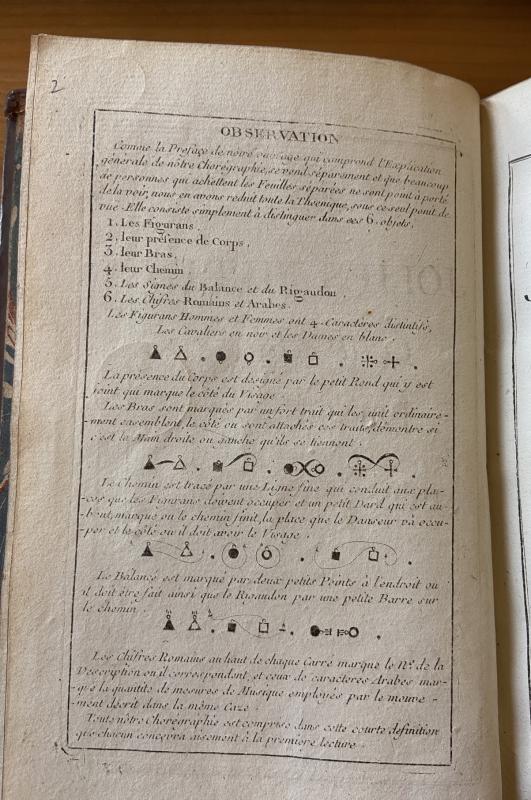 2
OBSERVATION
Comme la Preface de nôtre ouvrage qui comprend l'Explication
générale de nôtre Chorégraphie, se vend séparément et que beaucoup
de personnes qui achéttent les Feuilles séparées ne sont point à porté
de la voir, nous en avons redut toute la Theorique, sous ce seul point de
vue. Elle consiste simplement à distinguer dans ces 6. objets,
1. Les Figurans.
2. leur présence de Corps.
3. leur Bras.
4. leur Chemin.
5. Les Signes du Balance et du Rigaudon.
6. Les Chifres Romains et Arabes.
Les Figurans Hommes et Femmes ont 4. Caractères distintifs,
Les Cavaliers en noir et les Dames en blanc.
La présence du Corps est designé par le petit Rond qui y est
joint qui marque le côté du Visage.
Les Bras sont marqués par un fort trait qui les unit ordinaire-
-ment ensemblent, le côté ou sont attachés ces traits, démontre si
c'est la Main droite ou gauche qu'ils se tiennent.
Le Chemin est tracé par une Ligne fine qui conduit aux pla-
-ces que les Figurans doivent occuper et un petit Dard qui est au
bout, marque ou le chemin finit, la place que le Danseur và occu-
-per et le côté ou il doit avoir le Visage.
Le Balancé est marqué par deux petits Points à l'endroit ou
il doit être fait ainsi que le Rigaudon par une petite Barre sur
le chemin.
Les Chifres Romains au haut de chaque Carré marque le N.º de la
Description ou il correspondant, et ceux de caractères Arabes mar-
-que la quantité de mesures de Musique employés par le mouve-
-ment décrit dans la même Caze.
Toute nôtre Chorégraphie est comprise dans cette courte définition
que chacun concevra aisement à la première lecture.